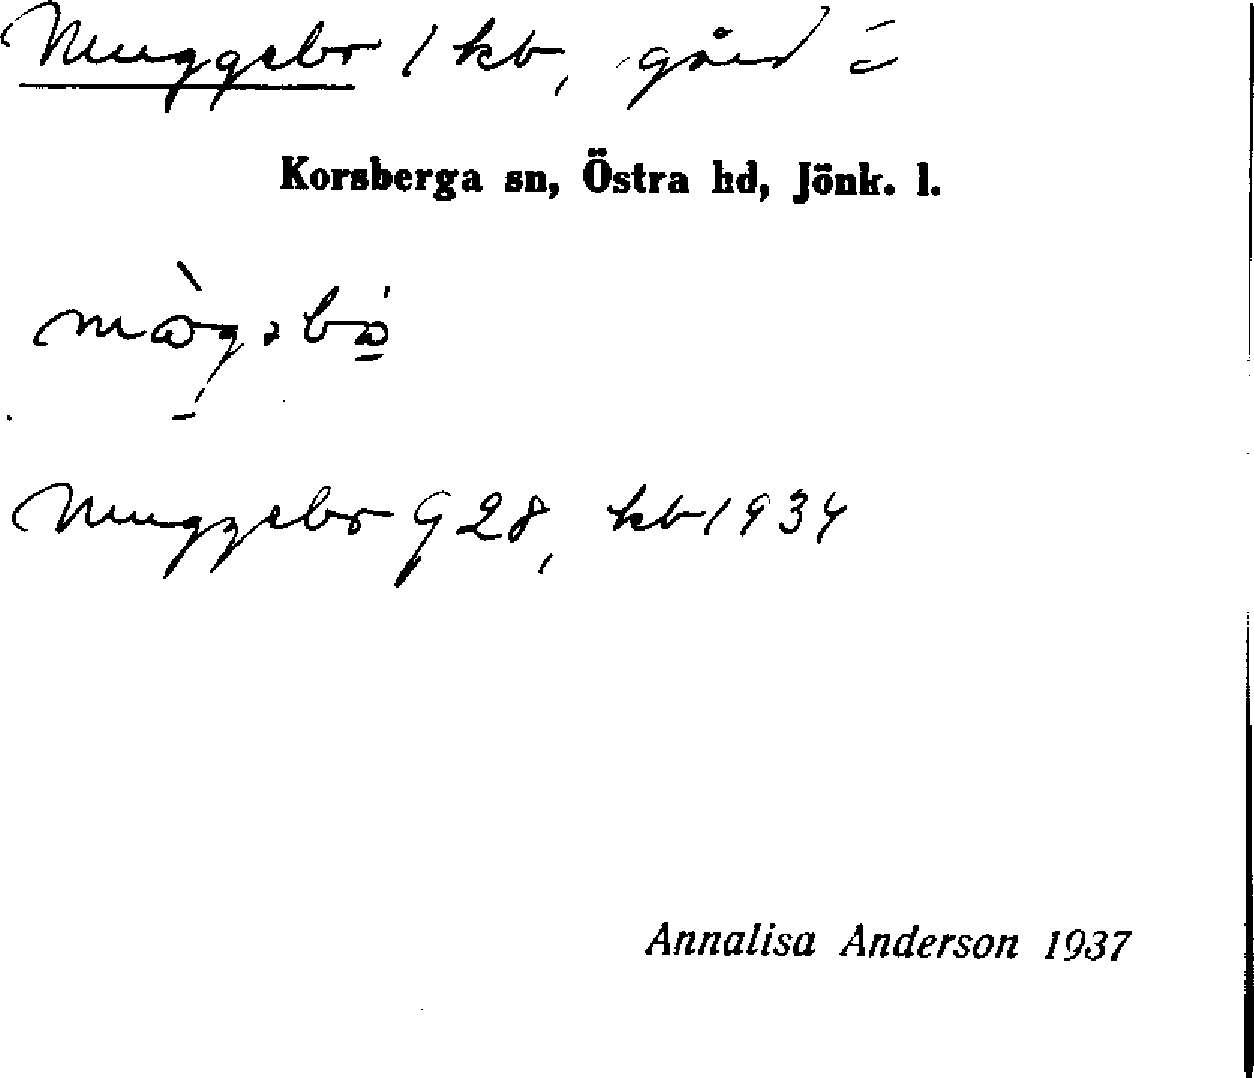 Muggebo 1 kb, gård
Korsberga sn, Östra hd, Jönk. l.
Muggebo G 28, kb 1934
Annalisa Anderson 1937